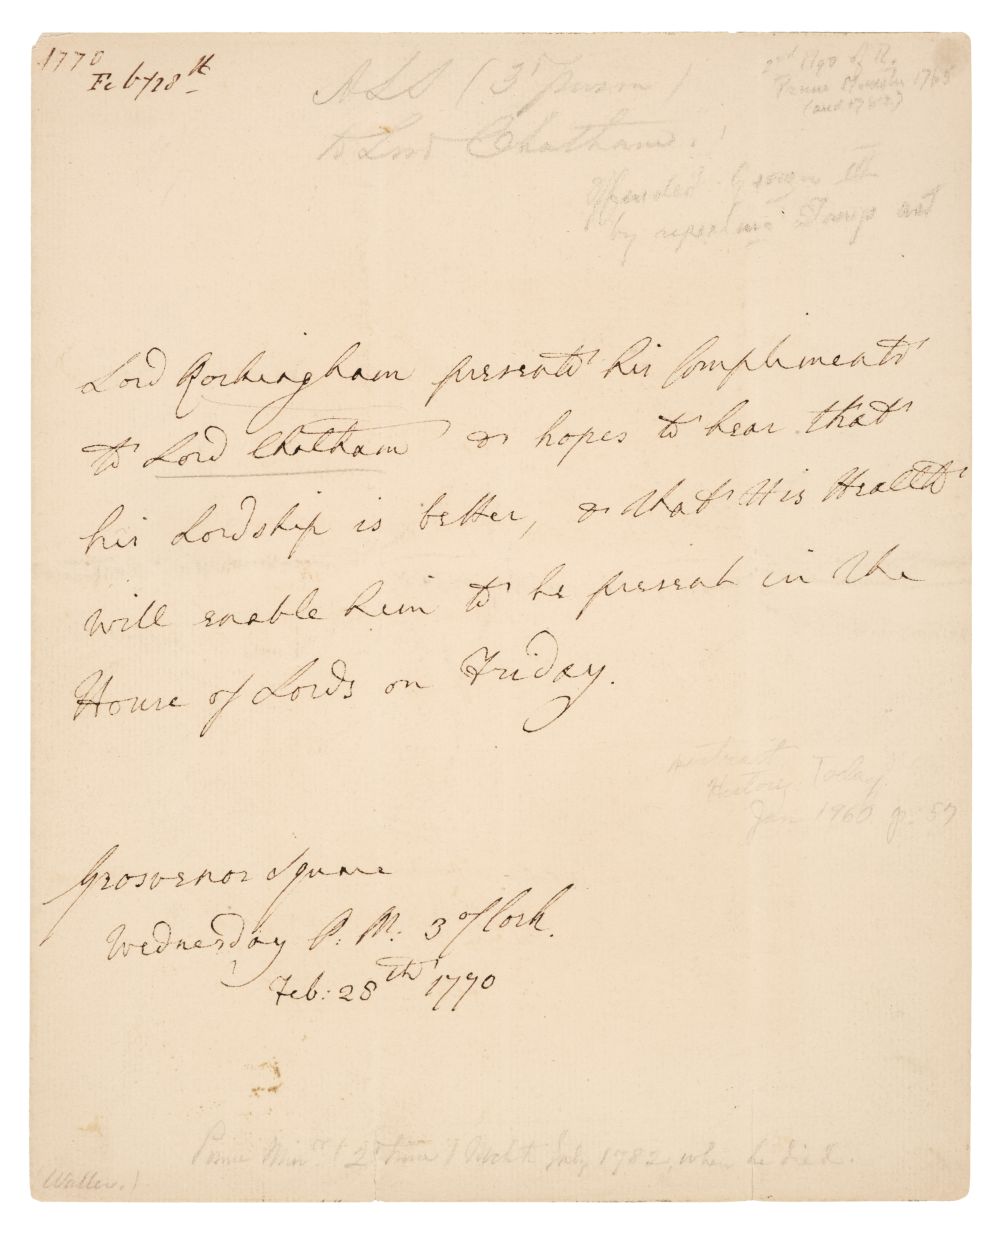 1770
Feby 28th
ALS (3rd person)
to Lord Chatham.
2nd Mqs of R.
Prime Minister 1765
(and 1782)
offended George III
by repealing Stamp Act
Lord Rockingham presents his Compliments
to Lord Chatham & hopes to hear that
his Lordship is better, & that His Health
will enable him to be present in the
House of Lords on Friday.
Abstract
History Today
Jan 1960 p. 57
Grosvenor Square
Wednesday P. M. 3 o'Clock.
Feb: 28th 1770
Prime Minr 2d time July 1782, when he died.